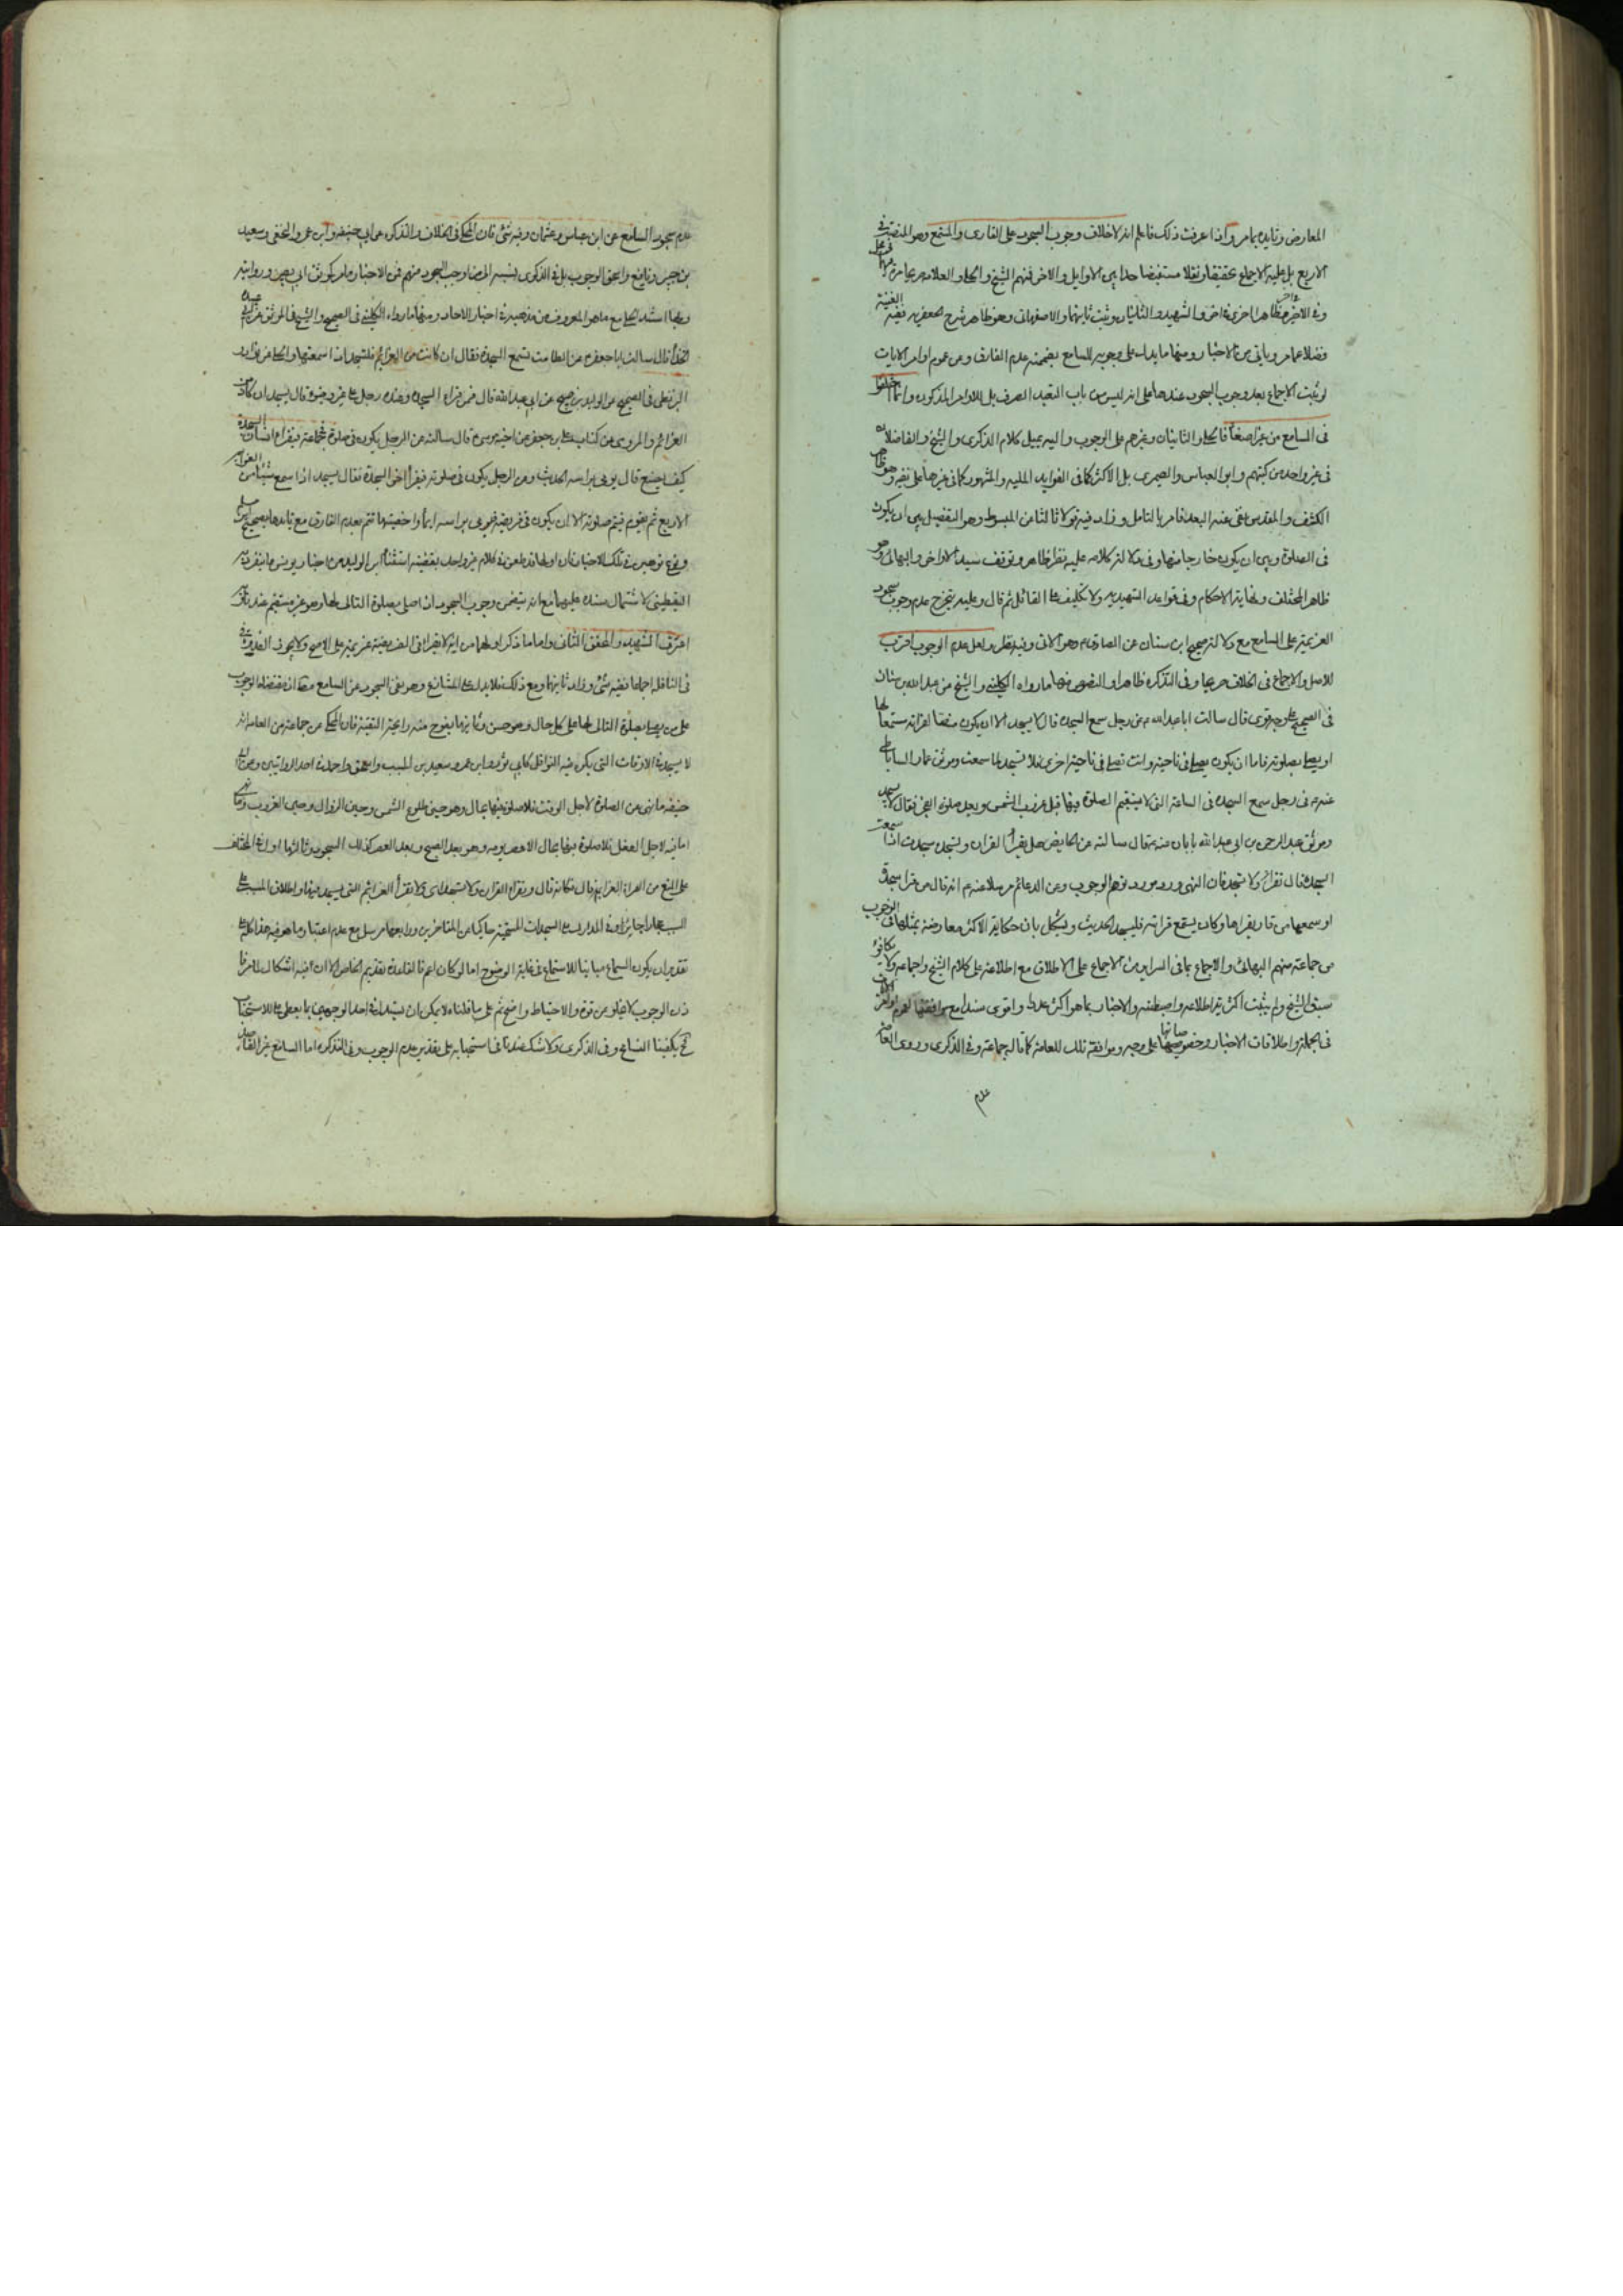 المعارض وتايده بمامر واذا عرفت ذلك فاعلم انه لاخلاف وجوب السجود على القارى والمستمع وهو المنصت في
الاربع بل عليه الاجماع تحققا ونقلا مستفيضا حد ايبين الاوايل والاخر فمنهم الشيخ والحلى والعلامه
وفى الاخيره ظاهرا اخرى واخر والشهيد والثانيان وثانيهما والاصفهانى وهو ظاهر شرح الجعفريه ففيه الغنية
فضلا عمامر وياتى من الاخبار ومنها مايدل على وجوبه للسامع بضميمة عدم الفارق وعن عموم اوامر الايات
لو ثبت الاجماع بعد وجوب السجود عندها على انه ليس من باب التعبد الصرف بل للاوامر المذكوره وانما اختلفوا
فى السامع من غير اصغاء فالحلى والثانيان وغيرهم على الوجوب واليه يميل كلام الذكرى والشيخ والفاضلان
فى غير واحد من كتبهم وابو العباس والصيمرى بل الاكثر كما فى الفوايد المليه والمشهور كما فى غيرها على نفيه وهو ظاهر
الكشف والمقدس على عنه البعد فامر بالتامل وزاد فيه قولا ثالثا عن المبسوط وهو التفصيل بين ان يكون
فى الصلوة وبين ان يكون خارجا منها وفى دلالة كلامه عليه نظر ظاهر وتوقف سيد المدارك والبهائى وهو
ظاهر المختلف ونهاية الاحكام وفى قواعد الشهيد ولا تكليف على القائل ثم قال وعليه يتخرج عدم وجوب سجود
العزيمة على السامع مع دلالة صحيح ابن سنان عن الصادق ع وهو الاتى وفيه نظر ولعل عدم الوجوب اقرب
للاصل والاجماع فى الخلاف صريحا وفى التذكره ظاهرا والنصوص منها مارواه الكلينى والشيخ عن عبد الله بن سنان
فى الصحيح على وجه قوى قال سالت ابا عبد الله ع عن رجل سمع السجده قال لا يسجد الا ان يكون منصتا لقرائته مستمعا لها
او يصلى بصلوته فاما ان يكون يصلى فى ناحية وانت تصلى فى ناحية اخرى فلا تسجد لما سمعت وموثق عمار الساباطى
عنه ع فى رجل سمع السجده فى الساعة التى لا يستقيم الصلوة فيها قبل غروب الشمس وبعد صلوة الفجر فقال لا يسجد
وموثق عبد الرحمن بن ابى عبد الله بابان عنه ع قال سالته عن الحايض هل يقرأ القران وتسجد سجدة اذا سمعت
السجدة قال تقرأ ولا تسجد فان النهى ورد مورد توهم الوجوب وعن الدعائم مرسلا عنه ع انه قال من قرا سجدة
او سمعها من قارء يقراها وكان يستمع قرائته فليسجد الحديث ويشكل بان حكاية الاكثر معارضة بمثلها فى الوجوب
من جماعة منهم البهائى والاجماع بما فى السراير من الاجماع على الاطلاق مع اطلاعه على كلام الشيخ واجماعه ولا يكافؤ
سبق الشيخ ولم يثبت اكثرية اطلاعه واضبطيته والاخبار بما هو اكثر عددا واقوى سندا مع موافقتها لعموم اوامر
فى الجملة واطلاقات الاخبار وخصوصياتها على وجه وموافقة تلك للعامة كما قاله جماعة وفى الذكرى وروى العامة
عدم
عدم سجود السامع عن ابن عباس وعثمان وفيه شئ فان المحكى فى الخلاف والتذكره عن ابى حنيفه وابن عمر والنخعى وسعيد
بن جبير ونافع واسحق الوجوب بل فى الذكرى نسبه الى وجوب السجود منهم فمن الاخبار مامر كموثق ابى بصير وروايته
ولهذا استند الحلى مع ماهو المعروف من مذهبه فى اخبار الاحاد ومنها مارواه الكلينى فى الصحيح والشيخ فى الموثق عن ابى عبيدة
الحذاء قال سالت ابا جعفر ع عن الطامث تسمع السجدة فقال ان كانت من العزايم فلتسجد اذا سمعتها والحلى عن نوادر
البزنطى فى الصحيح عن الوليد بن صبيح عن ابى عبد الله قال فمن قراء السجده وعنده رجل على غير وضوء قال يسجد ان كانت
العزائم والمروى من كتاب على بن جعفر عن اخيه موسى قال سالته عن الرجل يكون فى صلوة جماعة فيقرا انسان السجدة
كيف يصنع قال يومى براسه الحديث وعن الرجل يكون فى صلوته فيقرأ اخر السجدة فقال يسجد اذا سمع شيئا من العزائم
الاربع ثم يقوم فيتم صلوته الا ان يكون فى فريضة فيومى براسه ايماء واخصيتها تتم بعدم الفارق مع تايدها بصحيح
ويوهن تلك الاخبار فان اولها قد طعن فى كلام غير واحد بقضية استثناء ابن الوليد من اخبار يونس ما يتفرد به
اليقطينى لاشتمال سنده عليهما مع انه يتضمن وجوب السجود اذا صلى بصلوة التالى لها وهو غير مستقيم عندنا كما
اعترف الشهيد والمحقق الثانى واما ما ذكراه لها من انه لايقرا فى الفريضة عزيمة على الاصح ولا يجوز القدوة
فى النافله اجماعا ففيه شئ وزاد ثانيهما ومع ذلك فلا يدل على المتنازع وهو نفى السجود عن السامع مط اذ مقتضاه الوجوب
على من يصلى بصلوة التالى لها على كل حال وهو حسن وثانيهما يفوح منه رايحة التقية فان المحكى عن جماعة من العامه انه
لا يسجد فى الاوقات التى يكره فيه النوافل كابى ثور وابن عمر وسعيد بن المسيب واسحق واحمد فى احد الروايتين وعن ابى
حنيفه ما نهى عن الصلوة لاجل الوقت فلا صلوة فيها بحال وهو حين طلوع الشمس وحين الزوال وحين الغروب وما نهى
اما فيه لاجل الفعل فلا صلوة فيها بحال الا عصر يومه وهو بعد الصبح وبعد العصر كذلك السجود وثالثها اوله فى المختلف
على المنع من قراءة العزايم فكانه قال وتقراء القران ولا تسجد اى ولا تقرأ العزائم التى يسجد فيها واطلاق المسبب على
السبب مجازا جايز وفى المدارك على السجدات المستحبة حاكيا عن المتاخرين ورابعها مرسل مع عدم اعتبار ماهو فيه هذا كله على
تقدير ان يكون السماع مباينا للاستماع فى غاية الوضوح اما لو كان اعم فالقاعدة تقديم الخاص الا ان فيه اشكال لما عرفت
ذن الوجوب لايخلو من قوة والاحتياط واضح ثم على ما قلناه لا يمكن ان يستدل فى احد الوجهين بما يعطى على الاستحباب
يكفينا التسامح وفى الذكرى ولا شك عندنا فى استحبابه على تقدير عدم الوجوب وفى التذكره اما السامع غير القاصد